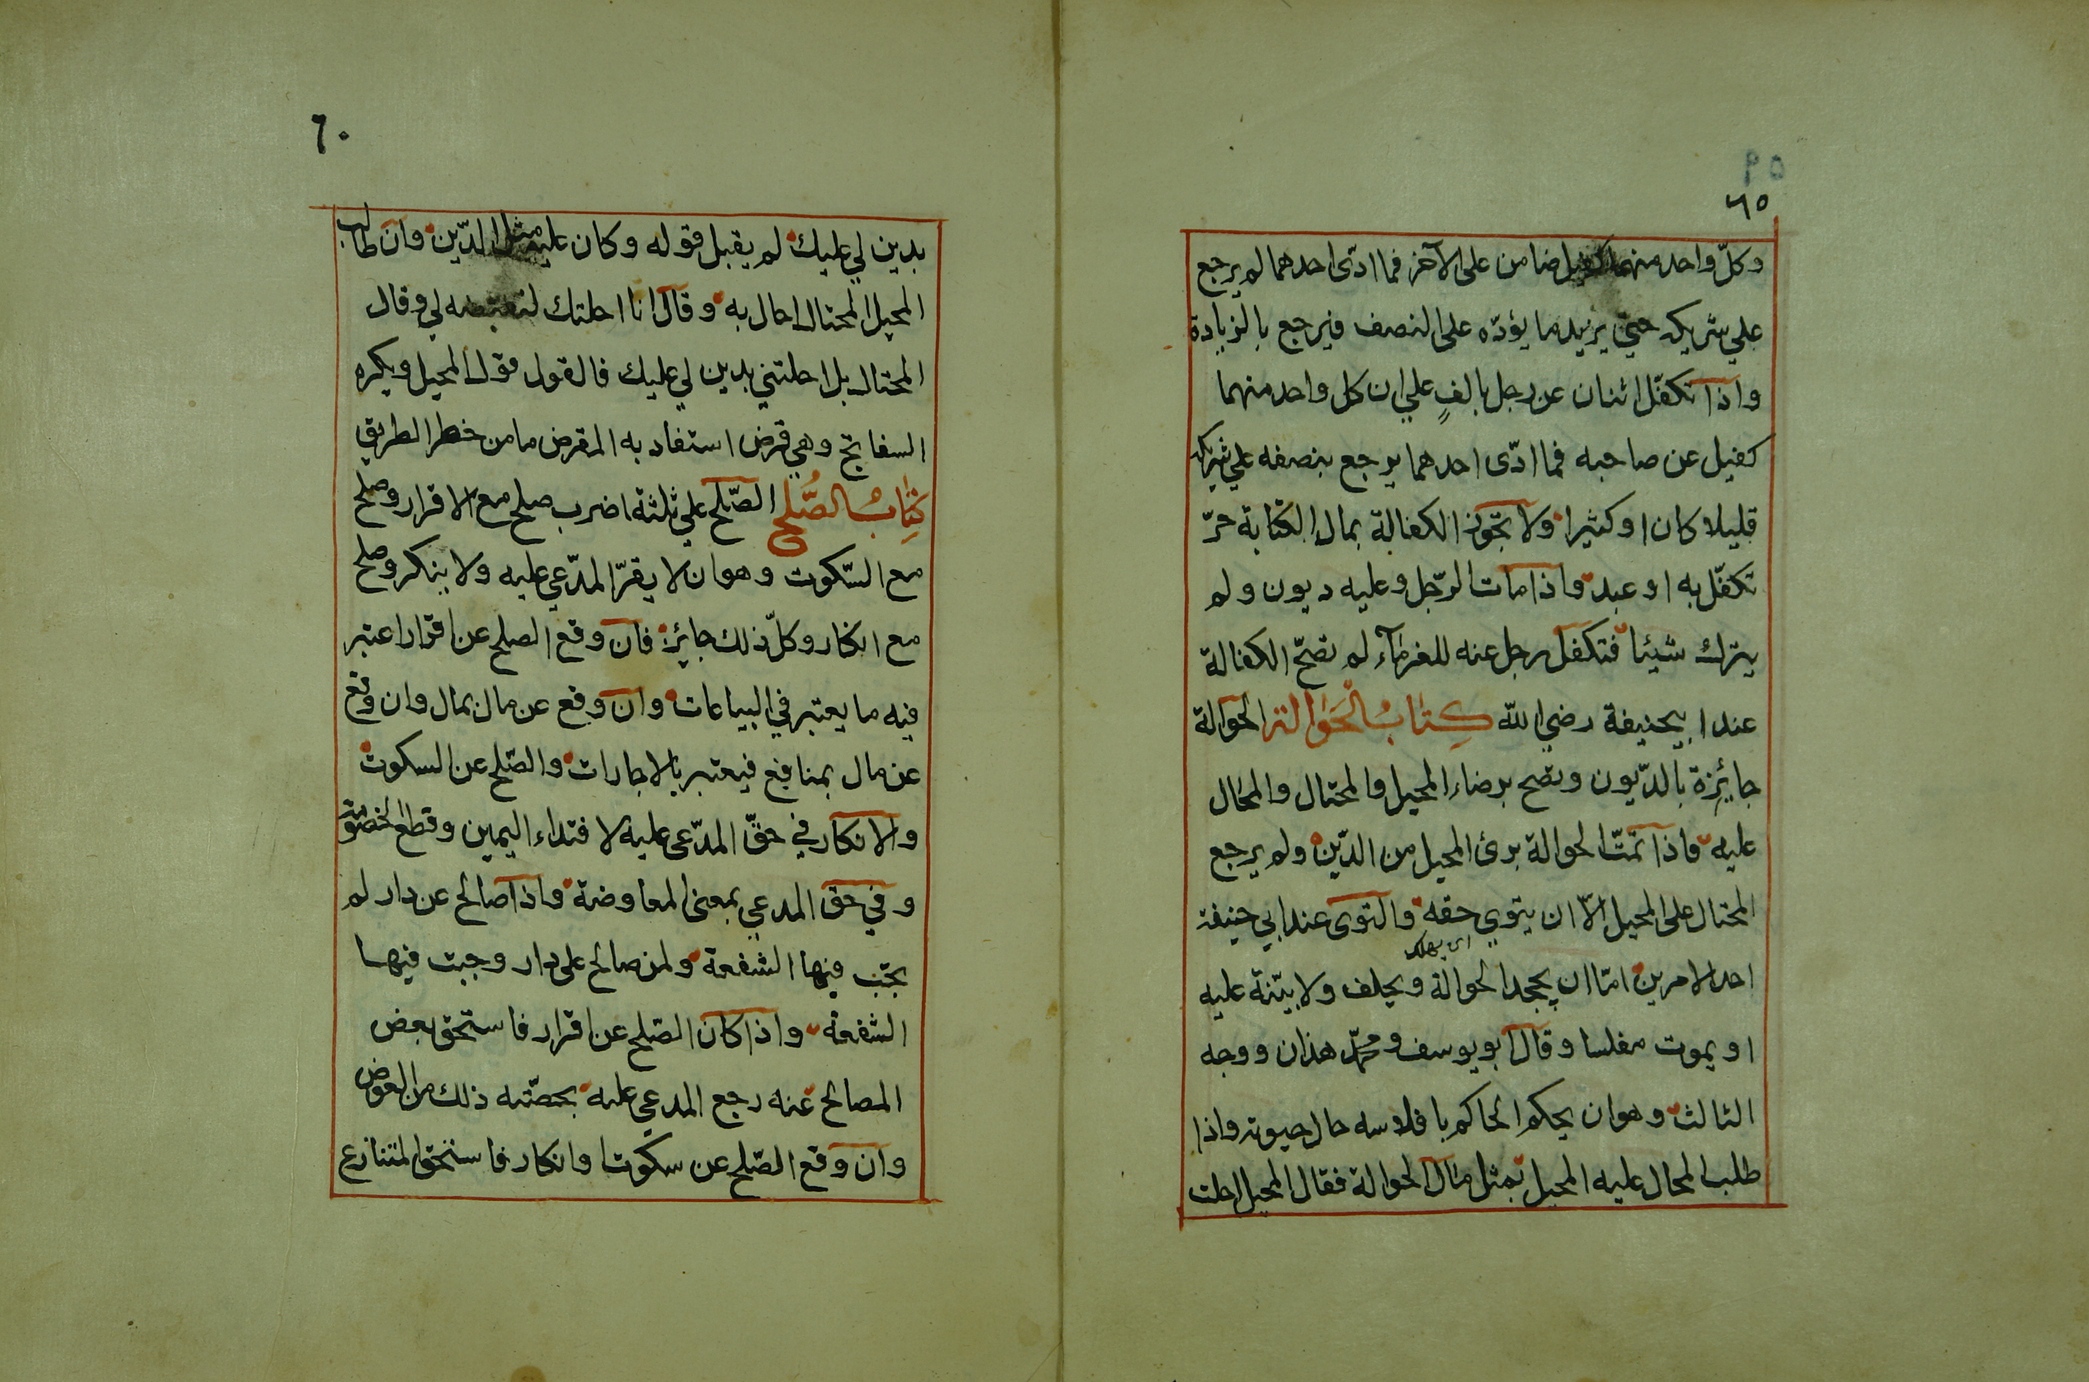 ٥٩
٦٥
وكلّ واحد منهما كفيل ضامن على الآخر فما ادّى احدهما لم يرجع
علي شريكه حتي يزيد ما يؤدّه على النصف فيرجع بالزيادة
واذا تكفّل اثنان عن رجل بالفٍ علي ان كل واحد منهما
كفيل عن صاحبه فما ادّى احدهما يرجع بنصفه علي شريكه
قليلا كان او كثيرا ولا تجوز الكفالة بمال الكتابة حرّ
تكفّل به او عبد واذا مات الرّجل وعليه ديون ولم
يترك شيئا فتكفل رجل عنه للغرمآء لم تصحّ الكفالة
عند ابيحنيفة رضي الله كتاب الحوالة الحوالة
جائزة بالدّيون وتصح برضاء المحيل والمحتال والمحال
عليه واذا تمّت الحوالة برئ المحيل من الدّين ولم يرجع
المحتال على المحيل الّا ان يتوي حقه والتوى عند ابي حنيفة
اى يهلك
احد الامرين امّا ان يجحد الحوالة ويحلف ولا بيّنة عليه
او يموت مفلسا وقال ابو يوسف ومحمّد هذان ووجه
الثالث وهو ان يحكم الحاكم بافلاسه حال حيوته واذا
طلب المحال عليه المحيل بمثل مال الحوالة فقال المحيل احلت
٦٠
بدين لي عليك لم يقبل قوله وكان عليه مثل الدّين وان طالب
المحيل المحتال احال به وقال انا احلتك لتقبضه لي وقال
المحتال بل احلتني بدين لي عليك فالقول قول المحيل ويكره
السفاتج وهي قرض استفاد به المقرض ما من خطر الطريق
كتاب الصُّلح الصّلح علي ثلثة اضرب صلح مع الاقرار وصلح
مع السّكوت وهو ان لا يقرّ المدّعي عليه ولا ينكر وصلح
مع انكار وكلّ ذلك جائز فان وقع الصلح عن اقرار اعتبر
فيه ما يعتبر في البياعات وان وقع عن مال بمال وان وقع
عن مال بمنافع فيعتبر بالاجارات والصّلح عن السكوت
والانكار في حقّ المدّعى عليه لافتداء اليمين وقطع الخصومة
وفي حق المدعي بمعنى المعاوضة واذا صالح عن دار لم
تجب فيها الشفعة ولمن صالح على دار وجبت فيها
الشفعة واذا كان الصّلح عن اقرار فاستحق بعض
المصالح عنه رجع المدعي عليه بحصّته ذلك من العوض
وان وقع الصّلح عن سكوت او انكار فاستحق المتنازع